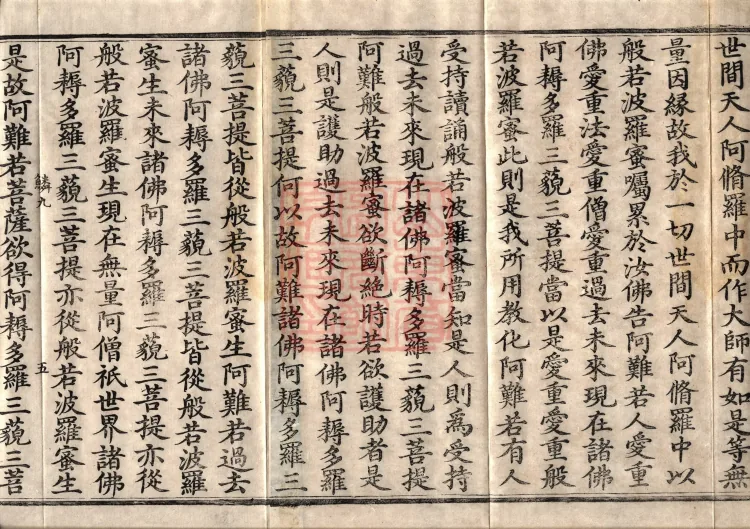 世間天人阿脩羅中而作大師有如是等無
量因緣故我於一切世間天人阿脩羅中以
般若波羅蜜囑累於汝佛告阿難若人愛重
佛愛重法愛重僧愛重過去未來現在諸佛
阿耨多羅三藐三菩提當以是愛重愛重般
若波羅蜜此則是我所用教化阿難若有人
受持讀誦般若波羅蜜當知是人則爲受持
過去未來現在諸佛阿耨多羅三藐三菩提
阿難般若波羅蜜欲斷絕時若欲護助者是
人則是護助過去未來現在諸佛阿耨多羅
三藐三菩提何以故阿難諸佛阿耨多羅三
藐三菩提皆從般若波羅蜜生阿難若過去
諸佛阿耨多羅三藐三菩提皆從般若波羅
蜜生未來諸佛阿耨多羅三藐三菩提亦從
般若波羅蜜生現在無量阿僧祇世界諸佛
阿耨多羅三藐三菩提亦從般若波羅蜜生
鱗九 五
是故阿難若菩薩欲得阿耨多羅三藐三菩